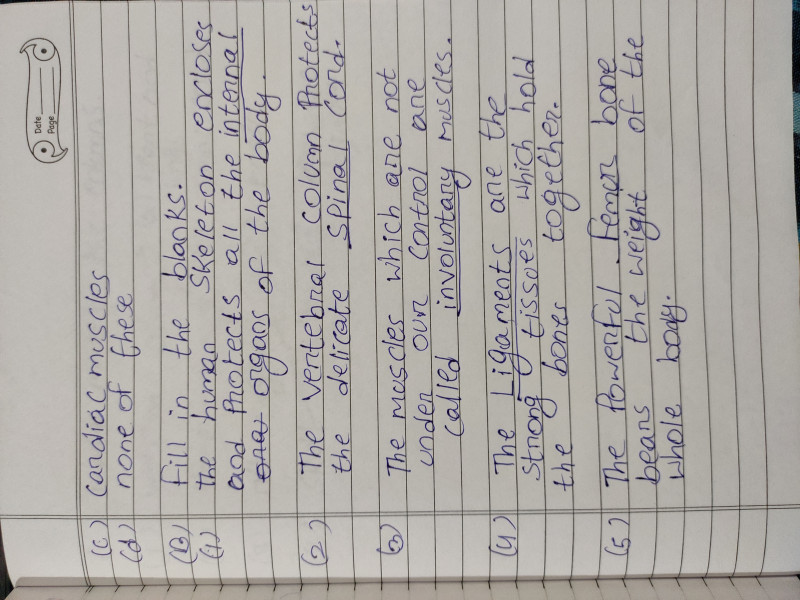 Date
Page
(c) Cardiac muscles
(d) none of these
(B) fill in the blanks.
(1) the human Skeleton encloses
and Protects all the internal
organs of the body.
(2) The vertebral column Protects
the delicate Spinal Cord.
(3) The muscles which are not
under our control are
Called involuntary muscles.
(4) The Ligaments are the
Strong tissues which hold
the bones together.
(5) The Powerful Femur bone
bears the weight of the
whole body.